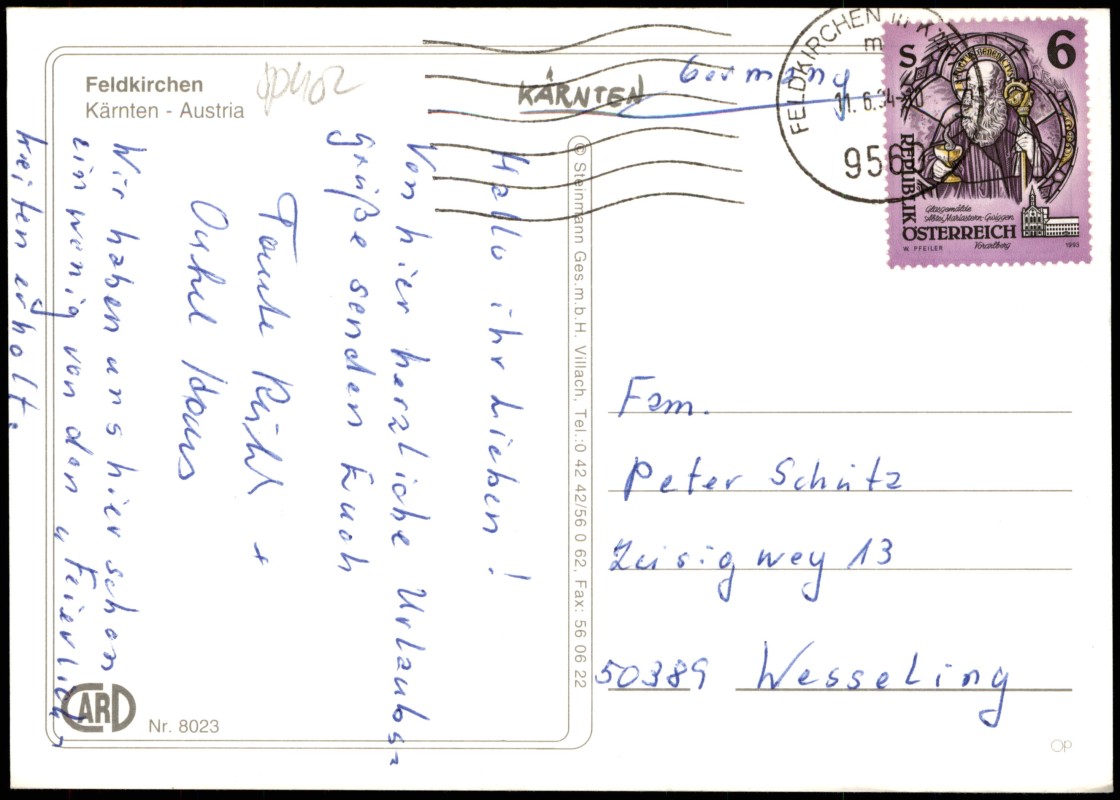 Feldkirchen
Kärnten - Austria
KÄRNTEN
Germany
FELDKIRCHEN in KÄR
11.6.94-20
956
S 6
REPUBLIK
ÖSTERREICH
Glasgemälde
Abtei Mariastern-Gwiggen
Vorarlberg
W. PFEILER
1993
Hallo ihr Lieben!
Von hier herzliche Urlaubs=
grüße senden Euch
Tante
Onkel Hans
Wir haben uns hier schon
ein wenig von den "Feierlich"
keiten erholt.
© Steinmann Ges.m.b.H. Villach, Tel.:0 42 42/56 0 62, Fax: 56 06 22
Fam.
Peter Schütz
Zeisigweg 13
50389 Wesseling
CARD
Nr. 8023
OP